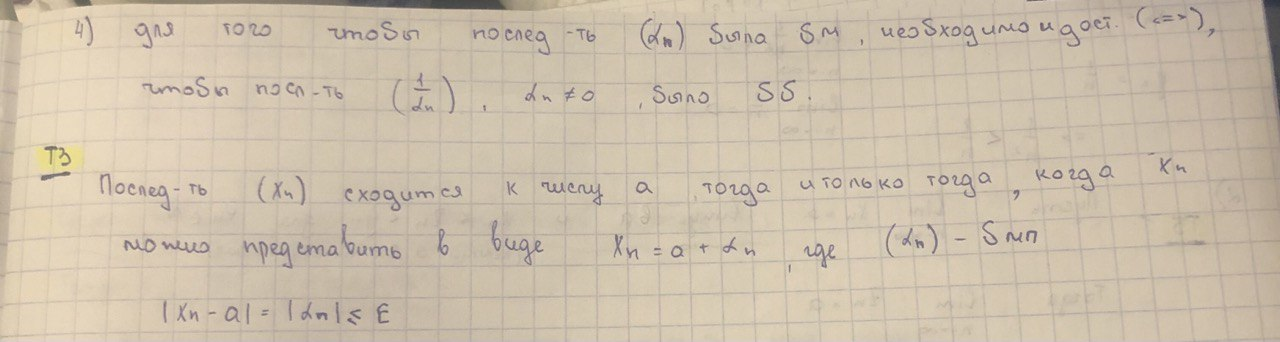 4) для того чтобы послед-ть (αn) была бм, необходимо и дост. (<=>),
чтобы посл-ть (1/αn), αn ≠ 0, было бб.
Т3
Послед-ть (xn) сходится к числу a, тогда и только тогда, когда xn
можно представить в виде xn = a + αn, где (αn) - бмп
|xn - a| = |αn| ≤ ε